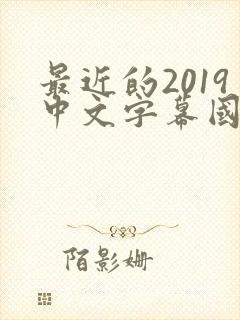 最近的2019
中文字幕國
陌影姗